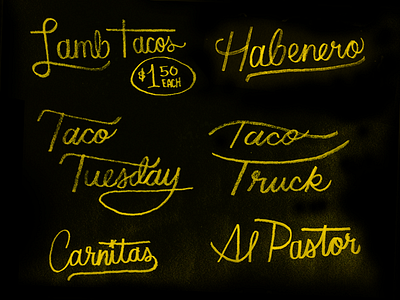 Lamb Tacos
$1.50
EACH
Habenero
Taco
Tuesday
Taco
Truck
Carnitas
Al Pastor